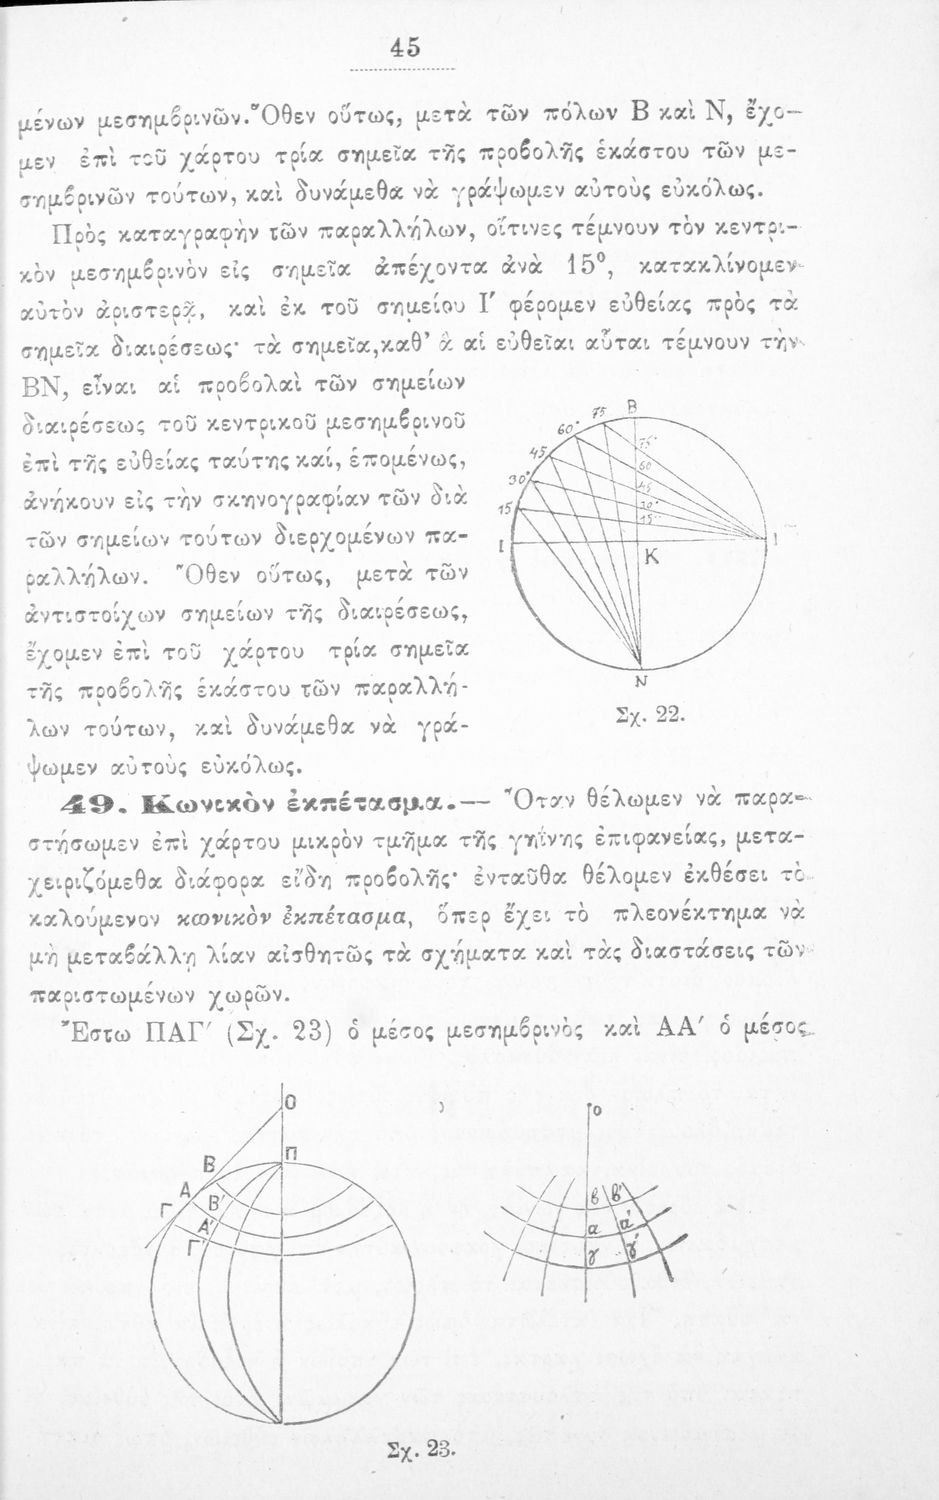 45
μένων μεσημβρινῶν. Ὅθεν οὕτως, μετὰ τῶν πόλων Β καὶ Ν, ἔχο–
μεν ἐπὶ τοῦ χάρτου τρία σημεῖα τῆς προβολῆς ἑκάστου τῶν με-
σημβρινῶν τούτων, καὶ δυνάμεθα νὰ γράψωμεν αὐτοὺς εὐκόλως.
Πρὸς καταγραφὴν τῶν παραλλήλων, οἵτινες τέμνουν τὸν κεντρι-
κὸν μεσημβρινὸν εἰς σημεῖα ἀπέχοντα ἀνὰ 15°, κατακλίνομεν
αὐτὸν ἀριστερᾷ, καὶ ἐκ τοῦ σημείου Ι′ φέρομεν εὐθείας πρὸς τὰ
σημεῖα διαιρέσεως· τὰ σημεῖα, καθ’ ἃ αἱ εὐθεῖαι αὗται τέμνουν τὴν
ΒΝ, εἶναι αἱ προβολαὶ τῶν σημείων
διαιρέσεως τοῦ κεντρικοῦ μεσημβρινοῦ
ἐπὶ τῆς εὐθείας ταύτης καί, ἑπομένως,
ἀνήκουν εἰς τὴν σκηνογραφίαν τῶν διὰ
τῶν σημείων τούτων διερχομένων πα-
ραλλήλων. Ὅθεν οὕτως, μετὰ τῶν
ἀντιστοίχων σημείων τῆς διαιρέσεως,
ἔχομεν ἐπὶ τοῦ χάρτου τρία σημεῖα
τῆς προβολῆς ἑκάστου τῶν παραλλή-
λων τούτων, καὶ δυνάμεθα νὰ γρά-
ψωμεν αὐτοὺς εὐκόλως.
Β
75
60°
45
30°
15
75°
60
45
30°
15°
Ι
Κ
Ι
Ν
Σχ. 22.
49. Κωνικὸν ἐκπέτασμα.— Ὅταν θέλωμεν νὰ παρα-
στήσωμεν ἐπὶ χάρτου μικρὸν τμῆμα τῆς γηΐνης ἐπιφανείας, μετα-
χειριζόμεθα διάφορα εἴδη προβολῆς· ἐνταῦθα θέλομεν ἐκθέσει τὸ
καλούμενον κωνικὸν ἐκπέτασμα, ὅπερ ἔχει τὸ πλεονέκτημα νὰ
μὴ μεταβάλλῃ λίαν αἰσθητῶς τὰ σχήματα καὶ τὰς διαστάσεις τῶν
παριστωμένων χωρῶν.
Ἔστω ΠΑΓ′ (Σχ. 23) ὁ μέσος μεσημβρινὸς καὶ ΑΑ′ ὁ μέσος
Ο
Π
Β
Α
Γ
Β′
Α′
Γ′
ο
β β′
α α′
γ γ′
Σχ. 23.